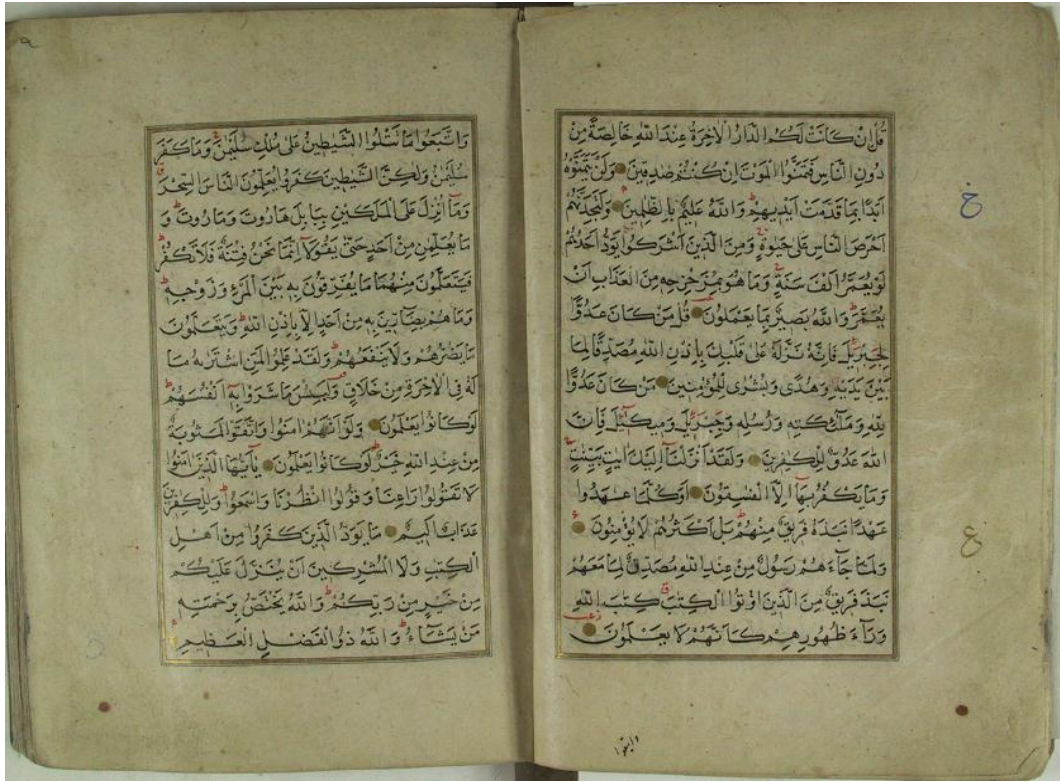 قُلْ اِنْ كَانَتْ لَكُمُ الدَّارُ الْاٰخِرَةُ عِنْدَ اللّٰهِ خَالِصَةً مِنْ
دُونِ النَّاسِ فَتَمَنَّوُا الْمَوْتَ اِنْ كُنْتُمْ صٰدِقِينَ وَلَنْ يَتَمَنَّوْهُ
اَبَدًا بِمَا قَدَّمَتْ اَيْدِيهِمْ وَاللّٰهُ عَلِيمٌ بِالظّٰلِمِينَ وَلَتَجِدَنَّهُمْ
اَحْرَصَ النَّاسِ عَلٰى حَيٰوةٍ وَمِنَ الَّذِينَ اَشْرَكُوا يَوَدُّ اَحَدُهُمْ
لَوْ يُعَمَّرُ اَلْفَ سَنَةٍ وَمَا هُوَ بِمُزَحْزِحِهِ مِنَ الْعَذَابِ اَنْ
يُعَمَّرَ وَاللّٰهُ بَصِيرٌ بِمَا يَعْمَلُونَ قُلْ مَنْ كَانَ عَدُوًّا
لِجِبْرِيلَ فَاِنَّهُ نَزَّلَهُ عَلٰى قَلْبِكَ بِاِذْنِ اللّٰهِ مُصَدِّقًا لِمَا
بَيْنَ يَدَيْهِ وَهُدًى وَبُشْرٰى لِلْمُؤْمِنِينَ مَنْ كَانَ عَدُوًّا
لِلّٰهِ وَمَلٰٓئِكَتِهِ وَرُسُلِهِ وَجِبْرِيلَ وَمِيكٰئلَ فَاِنَّ
اللّٰهَ عَدُوٌّ لِلْكٰفِرِينَ وَلَقَدْ اَنْزَلْنَآ اِلَيْكَ اٰيٰتٍ بَيِّنٰتٍ
وَمَا يَكْفُرُ بِهَآ اِلَّا الْفٰسِقُونَ اَوَكُلَّمَا عٰهَدُوا
عَهْدًا نَبَذَهُ فَرِيقٌ مِنْهُمْ بَلْ اَكْثَرُهُمْ لَا يُؤْمِنُونَ
وَلَمَّا جَآءَهُمْ رَسُولٌ مِنْ عِنْدِ اللّٰهِ مُصَدِّقٌ لِمَا مَعَهُمْ
نَبَذَ فَرِيقٌ مِنَ الَّذِينَ اُوتُوا الْكِتٰبَ كِتٰبَ اللّٰهِ
وَرَآءَ ظُهُورِهِمْ كَاَنَّهُمْ لَا يَعْلَمُونَ
خ
ع
واتبعوا
وَاتَّبَعُوا مَا تَتْلُوا الشَّيٰطِينُ عَلٰى مُلْكِ سُلَيْمٰنَ وَمَا كَفَرَ
سُلَيْمٰنُ وَلٰكِنَّ الشَّيٰطِينَ كَفَرُوا يُعَلِّمُونَ النَّاسَ السِّحْرَ
وَمَآ اُنْزِلَ عَلَى الْمَلَكَيْنِ بِبَابِلَ هَارُوتَ وَمَارُوتَ وَ
مَا يُعَلِّمٰنِ مِنْ اَحَدٍ حَتّٰى يَقُولَآ اِنَّمَا نَحْنُ فِتْنَةٌ فَلَا تَكْفُرْ
فَيَتَعَلَّمُونَ مِنْهُمَا مَا يُفَرِّقُونَ بِهِ بَيْنَ الْمَرْءِ وَزَوْجِهِ
وَمَا هُمْ بِضَآرِّينَ بِهِ مِنْ اَحَدٍ اِلَّا بِاِذْنِ اللّٰهِ وَيَتَعَلَّمُونَ
مَا يَضُرُّهُمْ وَلَا يَنْفَعُهُمْ وَلَقَدْ عَلِمُوا لَمَنِ اشْتَرٰىهُ مَا
لَهُ فِى الْاٰخِرَةِ مِنْ خَلَاقٍ وَلَبِئْسَ مَا شَرَوْا بِهِ اَنْفُسَهُمْ
لَوْ كَانُوا يَعْلَمُونَ وَلَوْ اَنَّهُمْ اٰمَنُوا وَاتَّقَوْا لَمَثُوبَةٌ
مِنْ عِنْدِ اللّٰهِ خَيْرٌ لَوْ كَانُوا يَعْلَمُونَ يَآ اَيُّهَا الَّذِينَ اٰمَنُوا
لَا تَقُولُوا رَاعِنَا وَقُولُوا انْظُرْنَا وَاسْمَعُوا وَلِلْكٰفِرِينَ
عَذَابٌ اَلِيمٌ مَا يَوَدُّ الَّذِينَ كَفَرُوا مِنْ اَهْلِ
الْكِتٰبِ وَلَا الْمُشْرِكِينَ اَنْ يُنَزَّلَ عَلَيْكُمْ
مِنْ خَيْرٍ مِنْ رَبِّكُمْ وَاللّٰهُ يَخْتَصُّ بِرَحْمَتِهِ
مَنْ يَشَآءُ وَاللّٰهُ ذُو الْفَضْلِ الْعَظِيمِ